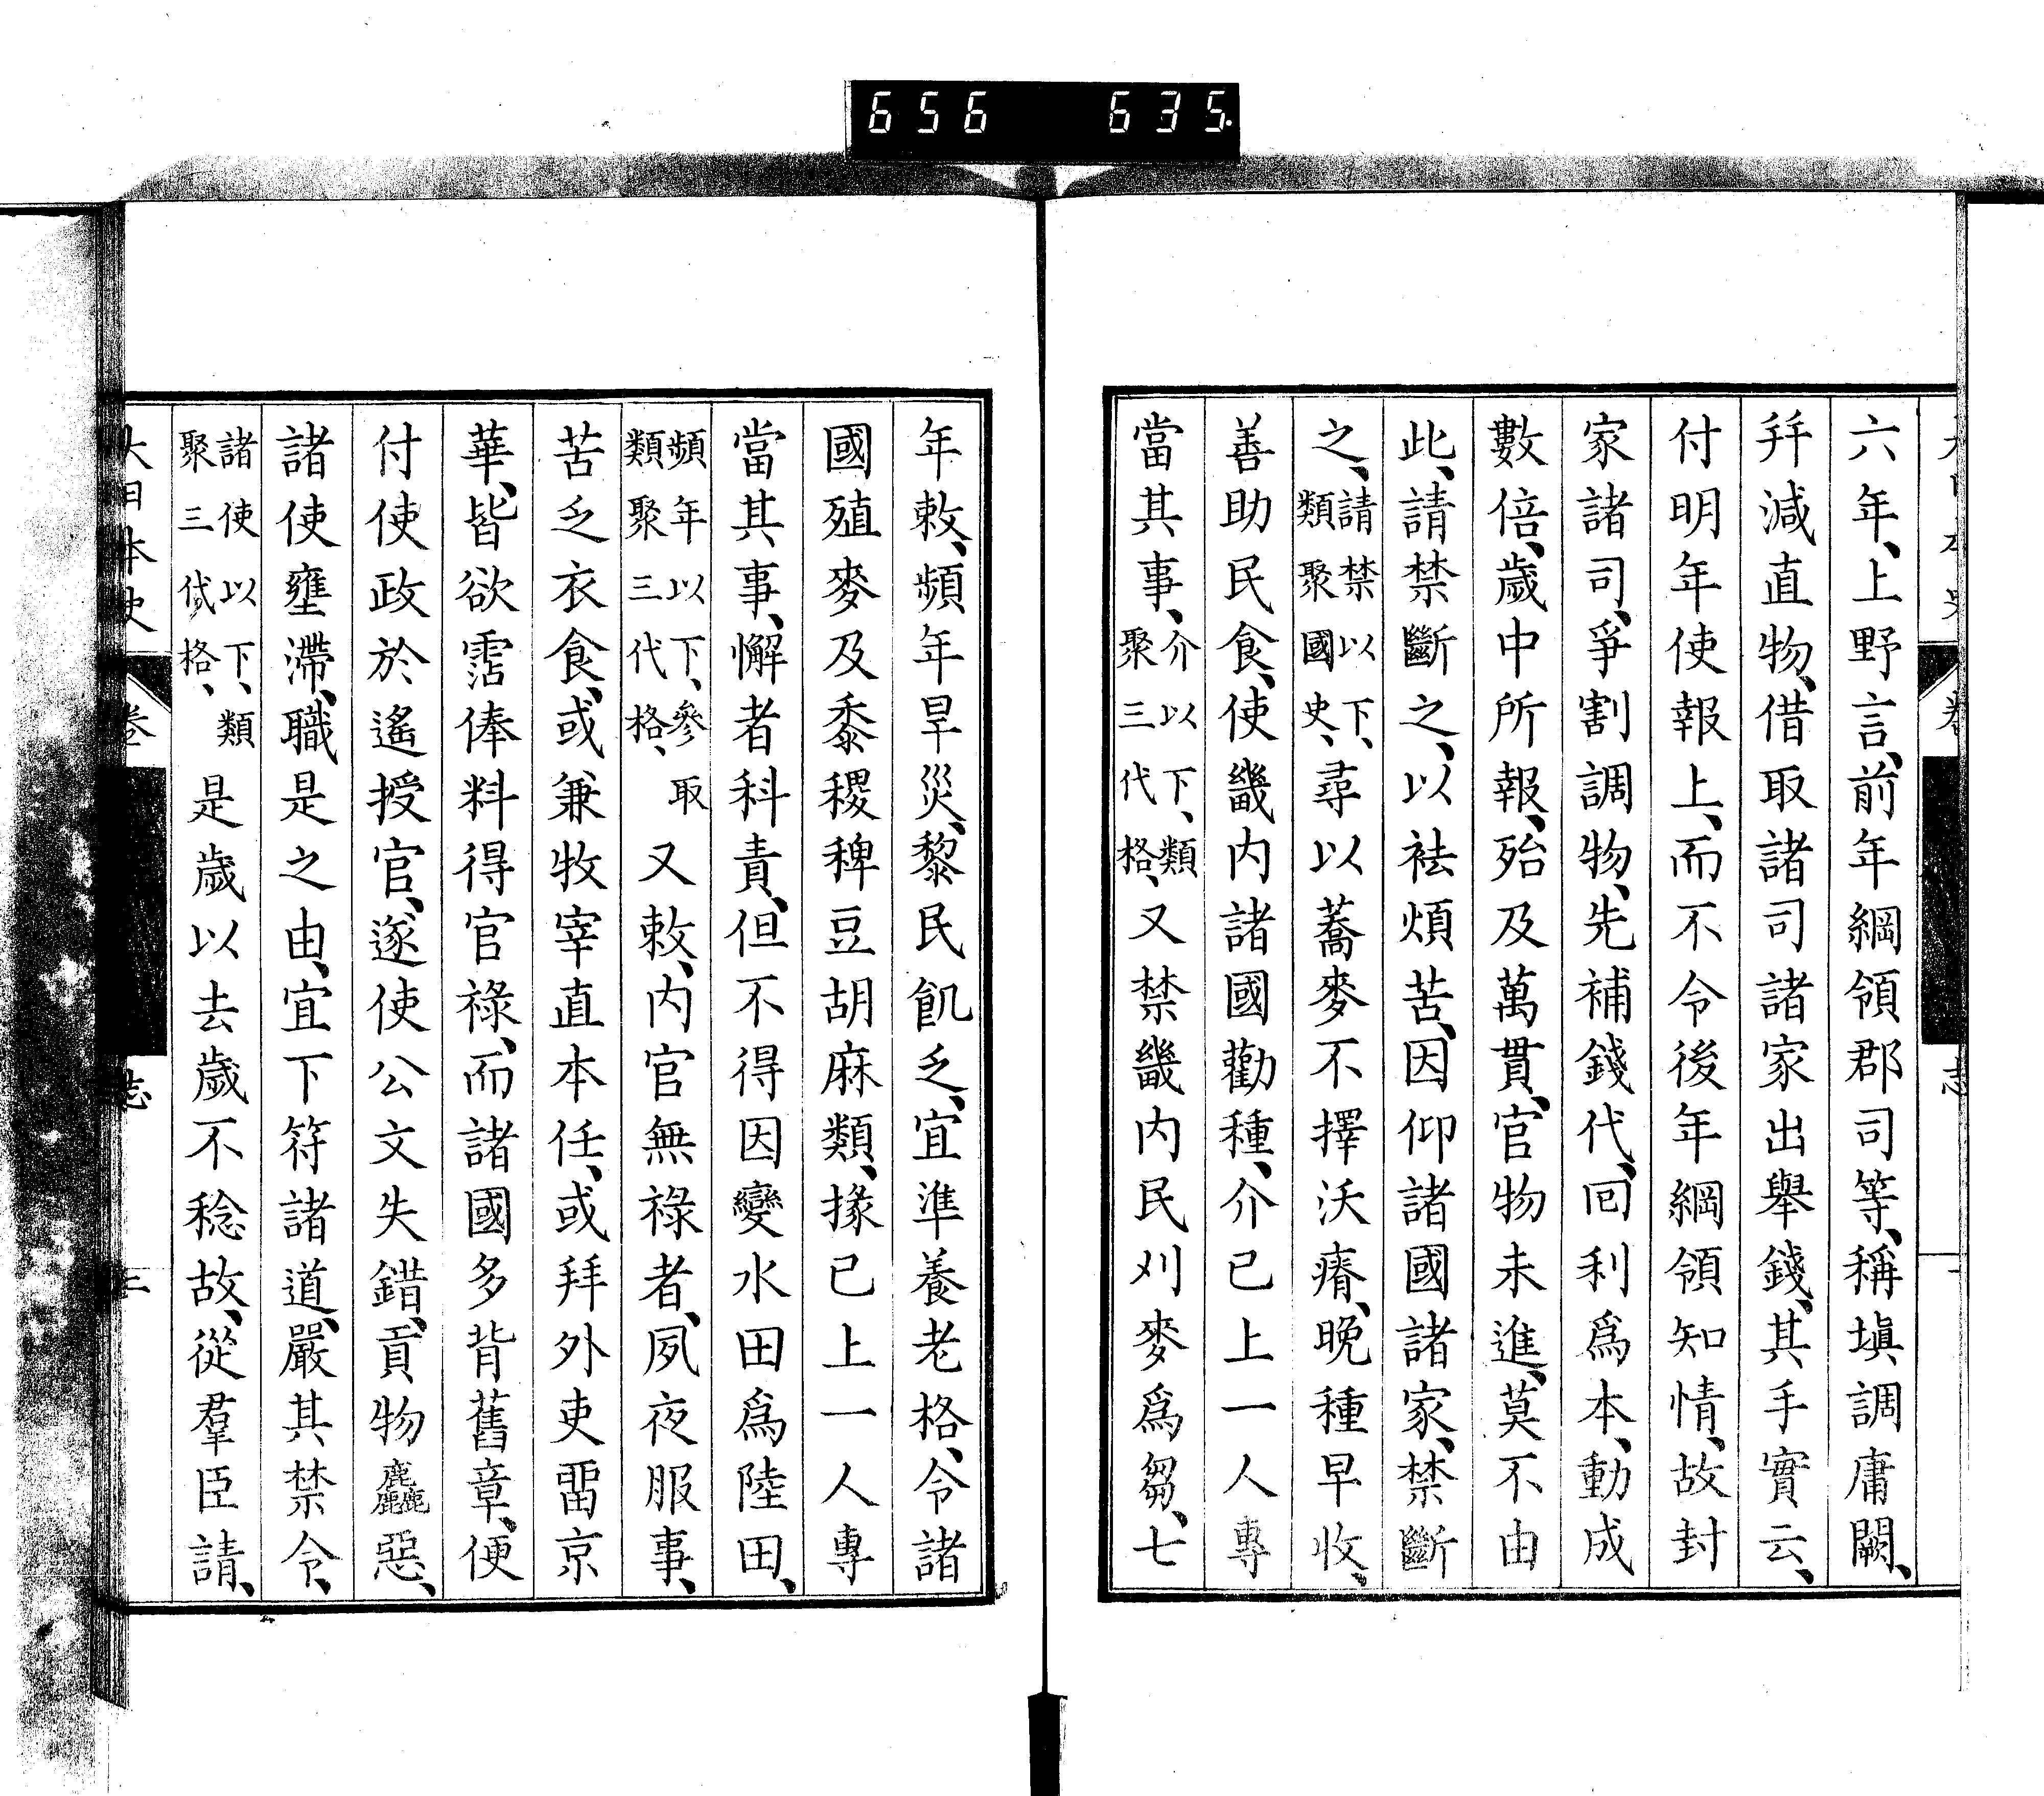 656 635
六年、上野言、前年綱領郡司等、稱塡調庸闕、
幷減直物、借取諸司諸家出舉錢、其手實云、
付明年使報上、而不令後年綱領知情、故封
家諸司、爭割調物、先補錢代、回利爲本、動成
數倍、歲中所報、殆及萬貫、官物未進、莫不由
此、請禁斷之、以袪煩苦、因仰諸國諸家、禁斷
之、請禁以下、類聚國史、尋以蕎麥不擇沃瘠、晚種早收、
善助民食、使畿内諸國勸種、介已上一人專
當其事、介以下、類聚三代格、又禁畿内民刈麥爲芻、七
年敕、頻年旱災、黎民飢乏、宜準養老格、令諸
國殖麥及黍稷稗豆胡麻類、掾已上一人專
當其事、懈者科責、但不得因變水田爲陸田、
頻年以下、參取類聚三代格、又敕、内官無祿者、夙夜服事、
苦乏衣食、或兼牧宰直本任、或拜外吏畱京
華、皆欲霑俸料得官祿、而諸國多背舊章、便
付使政於遙授官、遂使公文失錯、貢物麤惡、
諸使壅滯、職是之由、宜下符諸道、嚴其禁令、
諸使以下、類聚三代格、是歲以去歲不稔故、從羣臣請、
大日本史 卷 志